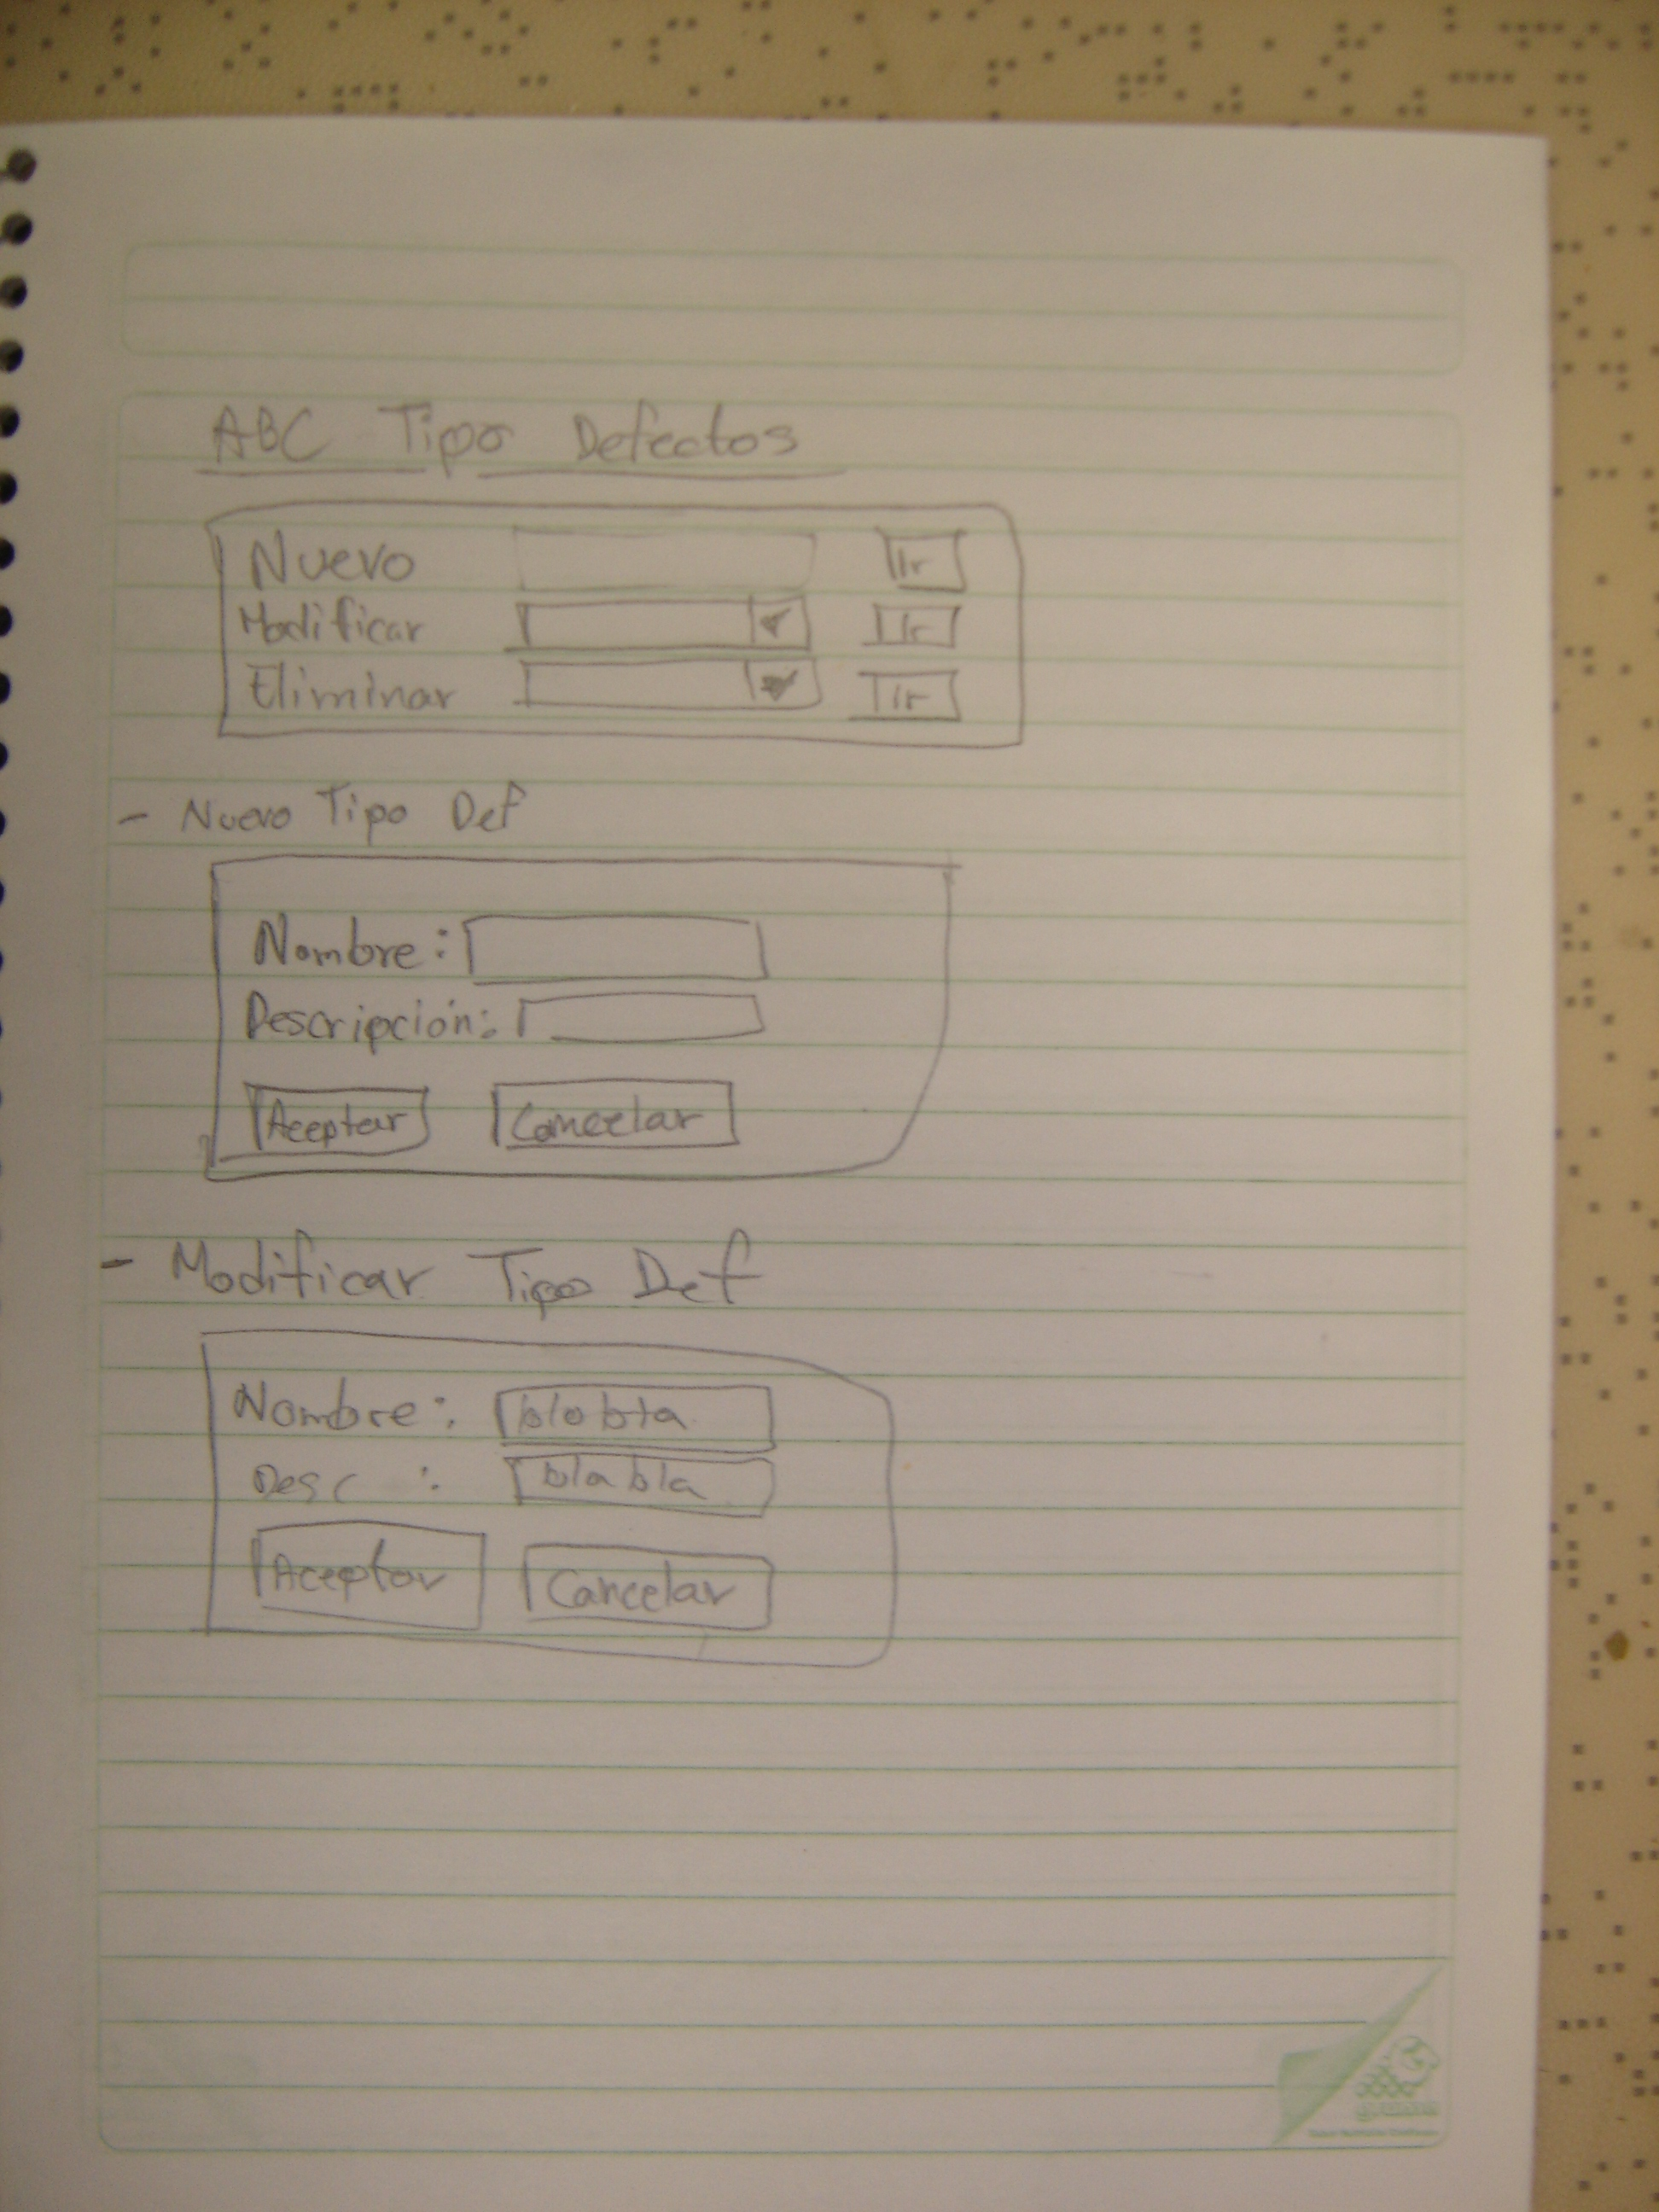 ABC Tipo Defectos
Nuevo Ir
Modificar Ir
Eliminar Ir
- Nuevo Tipo Def
Nombre:
Descripción:
Aceptar Cancelar
- Modificar Tipo Def
Nombre: blabla
Desc : blabla
Aceptar Cancelar